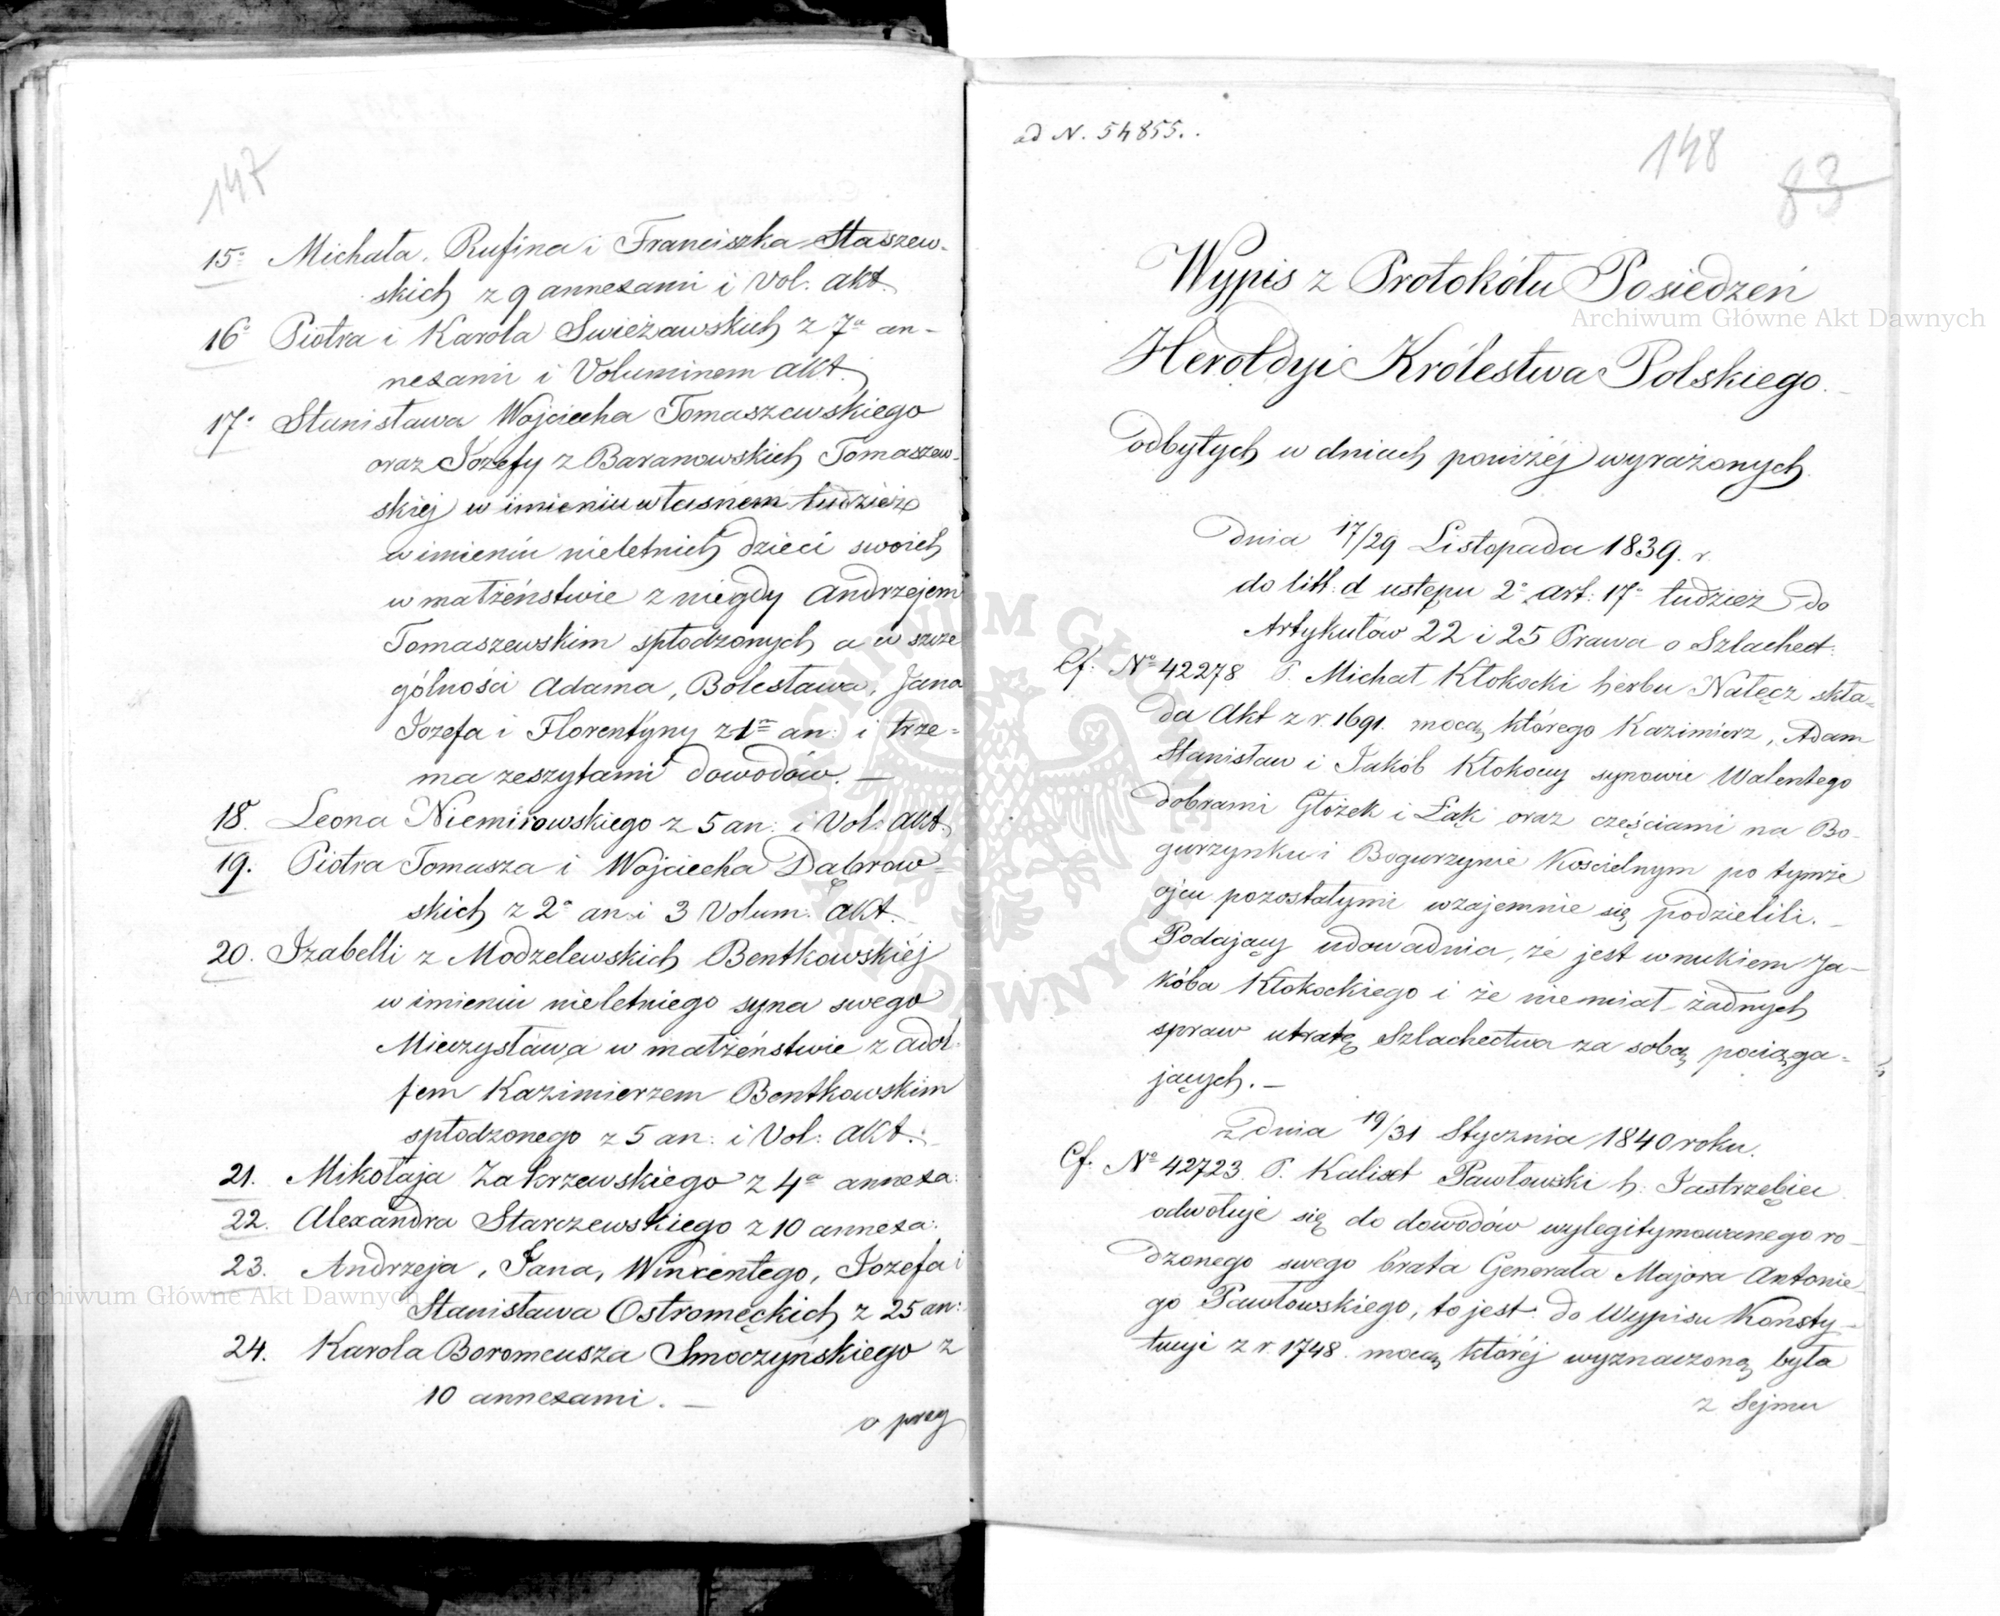 147
15° Michała, Rufina i Franciszka Staszew-
skich z 9 annexami i Vol. akt.
16° Piotra i Karola Swieżawskich z 7ª an-
nexami i Voluminem akt.
17° Stanisława Wojciecha Tomaszewskiego
oraz Józefy z Baranowskich Tomaszew-
skiej w imieniu własnem tudzież
w imieniu nieletnich dzieci swoich
w małżeństwie z niegdy Andrzejem
Tomaszewskim spłodzonych a w szcze
gólności Adama, Bolesława, Jana
Józefa i Florentyny z 1m an: i trze=
ma zeszytami dowodów. —
18. Leona Niemirowskiego z 5 an: i Vol: akt.
19. Piotra Tomasza i Wojciecha Dąbrow=
skich z 2ª an: i 3 Volum: akt.
20. Izabelli z Modzelewskich Bentkowskiéj
w imieniu nieletniego syna swego
Mieczysława w małżeństwie z Adol-
fem Kazimierzem Bentkowskim
spłodzonego z 5 an: i Vol: akt.
21. Mikołaja Zakrzewskiego z 4ª annexa:
22. Alexandra Starczewskiego z 10 annexa:
23. Andrzeja, Jana, Wincentego, Józefa i
Stanisława Ostromęckich z 25 an:
24. Karola Boromeusza Smoczyńskiego z
10 annexami. —
o przy
ad N. 54855.
148
83
Wypis z Protokółu Posiedzeń
Heroldyi Królestwa Polskiego.
odbytych w dniach poniżéj wyrażonych.
Dnia 17/29 Listopada 1839. r.
do litt: d ustępu 2° art: 17° tudzież do
Artykułów 22 i 25 Prawa o Szlachect:
Cf. Nº 42278 P. Michał Kłokocki herbu Nałęcz skła=
da Akt z r. 1691. mocą którego Kazimierz, Adam
Stanisław i Jakób Kłokoccy synowie Walentego
dobrami Głożek i Łąki oraz częściami na Bo-
gurzynku i Bogurzynie Kościelnym po tymże
ojcu pozostałymi wzajemnie się podzielili. —
Podający udowadnia, że jest wnukiem Ja-
kóba Kłokockiego i że niemiał żadnych
spraw utratę Szlachectwa za sobą pociąga-
jących. —
z dnia 19/31 Stycznia 1840 roku.
Cf. Nº 42723 P. Kalixt Pawłowski h. Jastrzębiec
odwołuje się do dowodów wylegitymowanego ro-
dzonego swego brata Generała Majora Antonie-
go Pawłowskiego, to jest: do Wypisu Konsty-
tucyi z r. 1748. mocą któréj wyznaczoną była
z Sejmu
Archiwum Główne Akt Dawnych
Archiwum Główne Akt Dawnych
ARCHIWUM GŁÓWNE AKT DAWNYCH